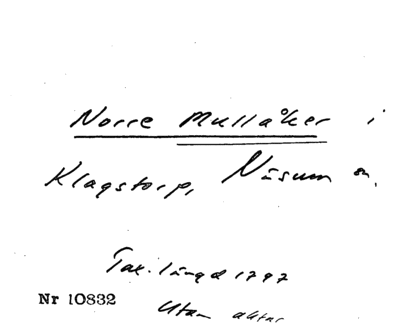 Norre Mullåker i
Klagstorp, Näsum sn.
Tax. längd 1797
Nr 10832
Utan aktnr